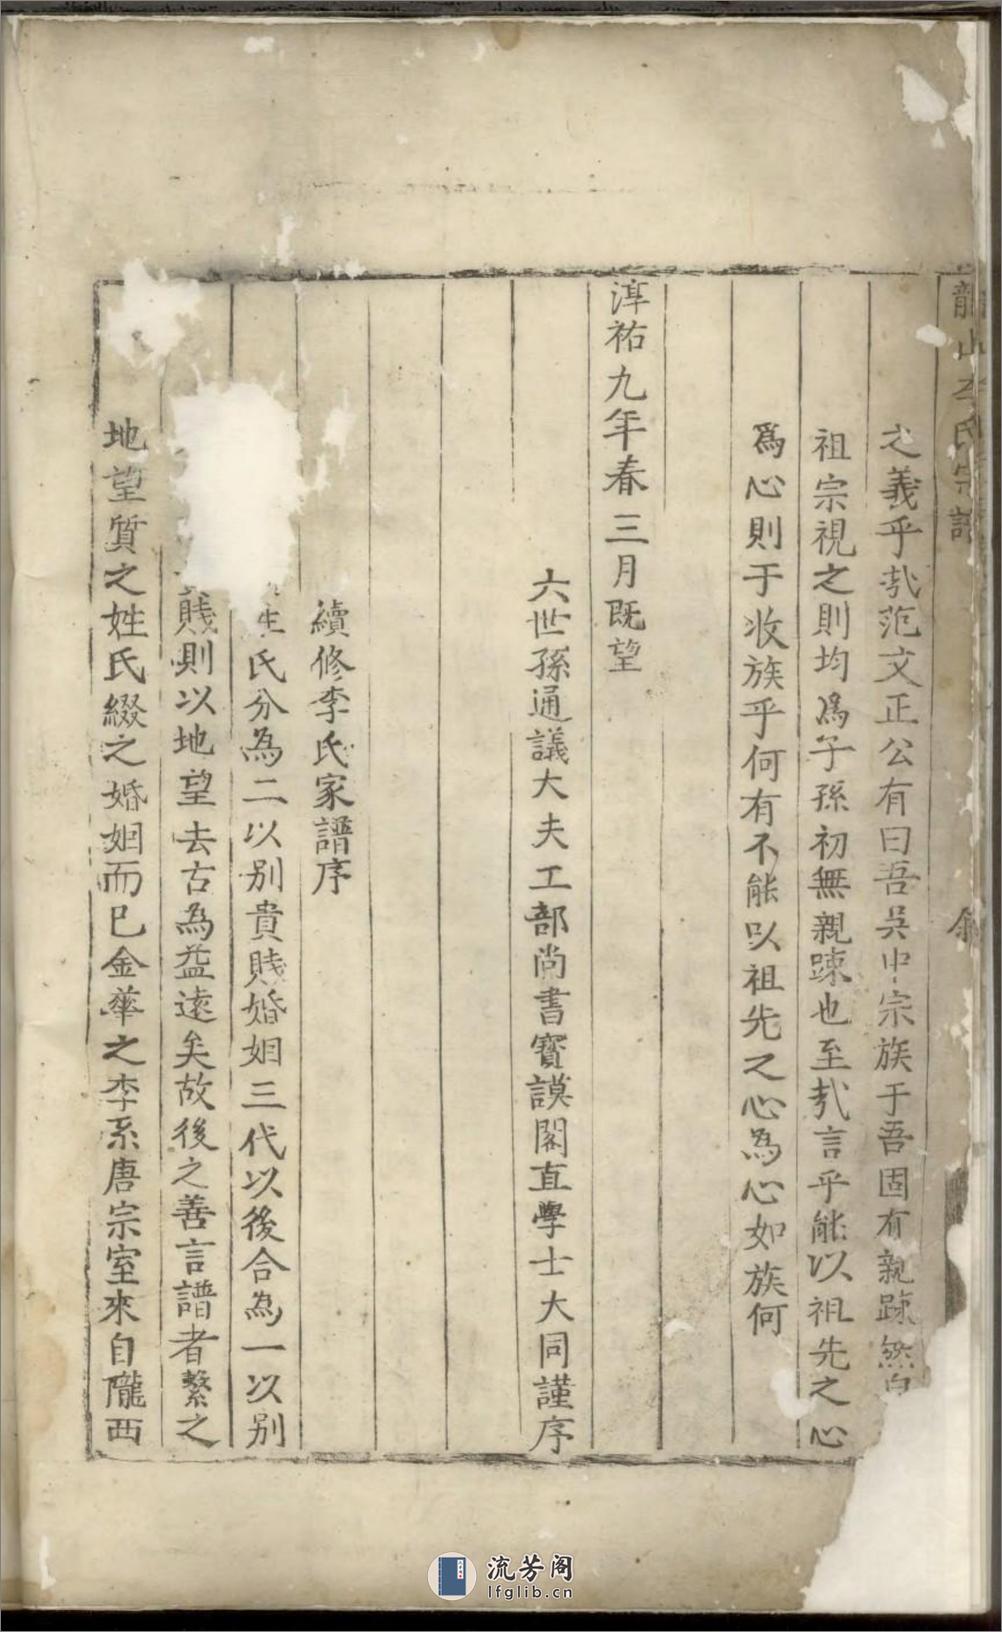 龍山李氏宗譜
之義乎哉范文正公有曰吾吳中宗族于吾固有親踈然自
祖宗視之則均爲子孫初無親踈也至哉言乎能以祖先之心
爲心則于收族乎何有不能以祖先之心為心如族何
淳祐九年春三月既望
六世孫通議大夫工部尚書寳謨閣直學士大同謹序
續修李氏家譜序
姓氏分為二以别貴賤婚姻三代以後合為一以别
賤則以地望去古為益遠矣故後之善言譜者繫之
地望質之姓氏綴之婚姻而已金華之李系唐宗室來自隴西
流芳阁
lfglib.cn